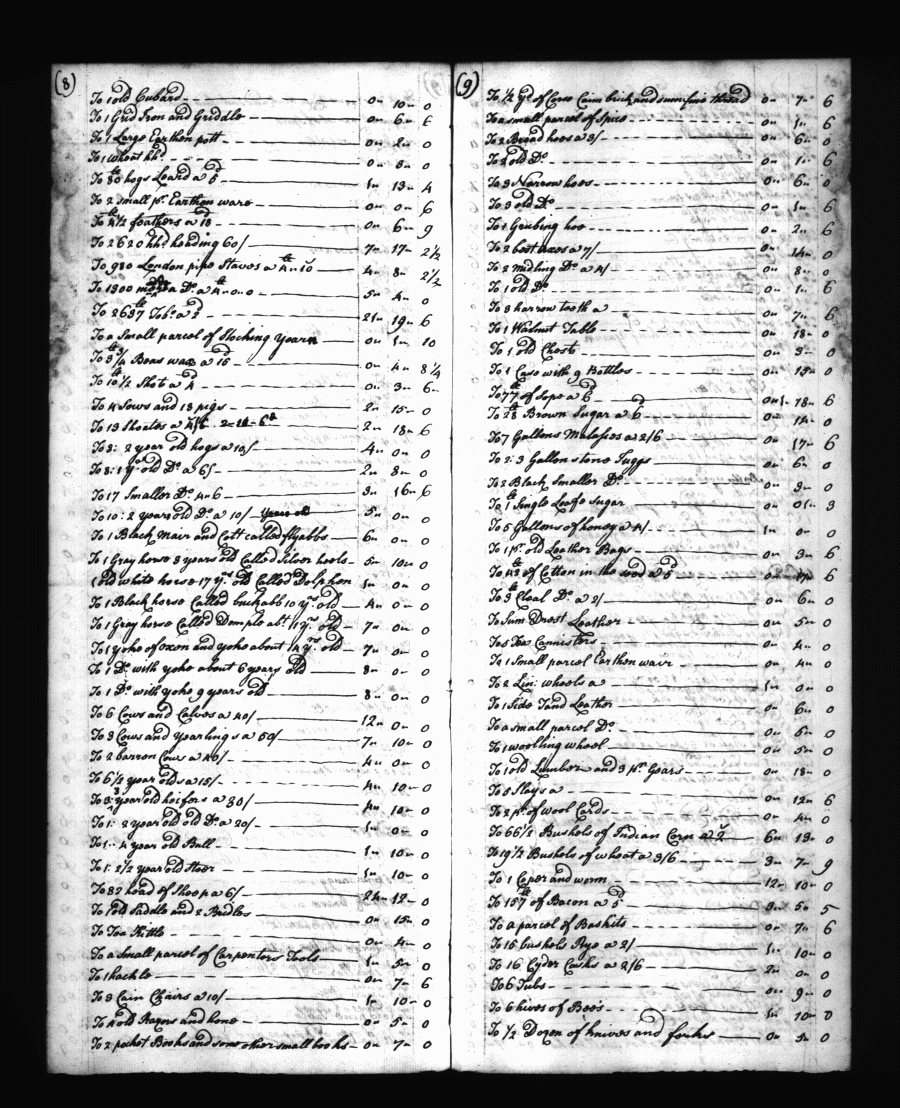 (8)
To 1 old Cubard 0 „ 10 „ 0
To 1 Grid Iron and Griddle 0 „ 6 „ 6
To 1 Large Earthen pott 0 „ 2 „ 0
To 1 wheat hhd. 0 „ 8 „ 0
To 80 lb hogs Leard a 5d 1 „ 13 „ 4
To 2 small ps. Earthen ware 0 „ 0 „ 6
To 4 1/2 lb feathers a 18d 0 „ 6 „ 9
To 2620 hhd. heading 60/ 7 „ 17 „ 2 1/2
To 980 London pipe Staves a 4 „ 10 4 „ 8 „ 2 1/2
To 1300 Do. a 4 „ 0 „ 0 5 „ 4 „ 0
To 2637 lb Tobo. a 2d 21 „ 19 „ 6
To a Small parcel of Stocking yearn 0 „ 1 „ 10
To 3 3/4 lb Beas wax a 15d 0 „ 4 „ 8 1/4
To 10 1/2 lb Shot a 4d 0 „ 3 „ 6
To 4 Sows and 18 pigs 2 „ 15 „ 0
To 13 Shoates a 4/6 2 „ 18 „ 6
To 8: 2 year old hogs a 10/ 4 „ 0 „ 0
To 8: 1 yr. old Do. a 6/ 2 „ 8 „ 0
To 17 Smaller Do. 4 „ 6 3 „ 16 „ 6
To 10: 2 years old Do. a 10/ 5 „ 0 „ 0
To 1 Black Mair and Colt called flyabbs 6 „ 0 „ 0
To 1 Gray horse 8 years old Called Silver heels 5 „ 10 „ 0
1 Old white horse 17 yrs. Do Called Dolphen 1 „ 0 „ 0
To 1 Black horse Called buckabb 10 yrs. old 4 „ 0 „ 0
To 1 Gray horse Called Demple abt. 1 yr. old 7 „ 0 „ 0
To 1 yoke of oxen and yoke about 14 yrs. old 7 „ 0 „ 0
To 1 Do. with yoke about 6 years old 8 „ 0 „ 0
To 1 Do. with yoke 9 years old 8 „ 0 „ 0
To 6 Cows and Calves a 40/ 12 „ 0 „ 0
To 3 Cows and yearlings a 50/ 7 „ 10 „ 0
To 2 barron Cows a 40/ 4 „ 0 „ 0
To 6 1/2 year olds a 15/ 4 „ 10 „ 0
To 3: 3 year old heifers a 30/ 4 „ 10 „ 0
To 1: 2 year old old Do. a 20/ 1 „ 0 „ 0
To 1: 4 year old Bull 1 „ 10 „ 0
To 1: 2 1/2 year old Steer 1 „ 10 „ 0
To 82 head of Sheep a 6/ 24 „ 12 „ 0
To 1 old Saddle and 2 Bridles 0 „ 15 „ 0
To Tea Kittle 0 „ 4 „ 0
To a Small parcel of Carpenters Tools 1 „ 5 „ 0
To 1 hackle 0 „ 7 „ 6
To 3 Cain Chairs a 10/ 1 „ 10 „ 0
To 4 old Razors and hone 0 „ 5 „ 0
To 2 pocket Books and some other small books 0 „ 7 „ 0
(9)
To 1/2 yd. of Cain brick and sum fine thread 0 „ 7 „ 6
To a small parcel of Spice 0 „ 1 „ 6
To 2 Broad hoes a 3/ 0 „ 6 „ 0
To 2 old Do. 0 „ 1 „ 6
To 3 Narrow hoes 0 „ 6 „ 0
To 3 old Do. 0 „ 1 „ 6
To 1 Grubing hoe 0 „ 2 „ 6
To 2 best axes a 7/ 0 „ 14 „ 0
To 2 midling Do. a 4/ 0 „ 8 „ 0
To 1 old Do. 0 „ 1 „ 6
To 8 harrow teeth a 0 „ 7 „ 6
To 1 Walnut Table 0 „ 18 „ 0
To 1 old Chest 0 „ 3 „ 0
To 1 Case with 9 Bottles 0 „ 15 „ 0
To 77 lb of Sope a 6d 1 „ 18 „ 6
To 28 lb Brown Sugar a 6d 0 „ 14 „ 0
To 7 Gallons Malasses a 2/6 0 „ 17 „ 6
To 2: 3 Gallon stone Juggs 0 „ 6 „ 0
To 2 Black Smaller Do. 0 „ 3 „ 0
To 1 lb Single Loafe Sugar 0 „ 01 „ 3
To 5 Gallons of honey a 4/ 1 „ 0 „ 0
To 1 pr. old Leather Bags 0 „ 3 „ 6
To 42 lb of Cotton in the seed a 5d 0 „ 17 „ 6
To 3 lb Cleal Do. a 2/ 0 „ 6 „ 0
To Sum Drest Leather 0 „ 5 „ 0
To 5 Tea Cannisters 0 „ 4 „ 0
To 1 Small parcel Earthen wair 0 „ 4 „ 0
To 2 Lin: wheels a 1 „ 0 „ 0
To 1 Side Tand Leather 0 „ 6 „ 0
To a small parcel Do. 0 „ 6 „ 0
To 1 woolling wheel 0 „ 5 „ 0
To 1 old Lumber and 3 pr. Gears 0 „ 18 „ 0
To 5 Slays a 0 „ 12 „ 6
To 2 pr. of wool Cards 0 „ 4 „ 0
To 66 1/2 Bushels of Indian Corn a 2/ 6 „ 13 „ 0
To 19 1/2 Bushels of wheat a 3/6 3 „ 7 „ 9
To 1 Coper and worm 12 „ 10 „ 0
To 157 lb of Bacon a 5d 3 „ 5 „ 5
To a parcel of Baskits 0 „ 7 „ 6
To 15 bushels Rye a 2/ 1 „ 10 „ 0
To 16 Cyder Casks a 2/6 2 „ 0 „ 0
To 6 Tubs 0 „ 9 „ 0
To 6 hives of Bees 1 „ 10 „ 0
To 1/2 Dozen of knives and forks 0 „ 3 „ 0